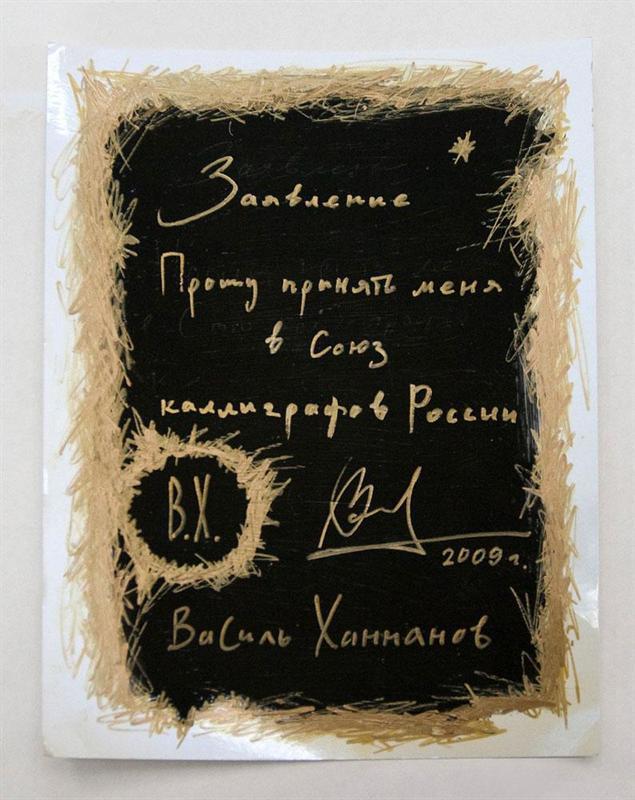 Заявление
Прошу принять меня
в Союз
каллиграфов России
В.Х.
2009г.
Василь Ханнанов